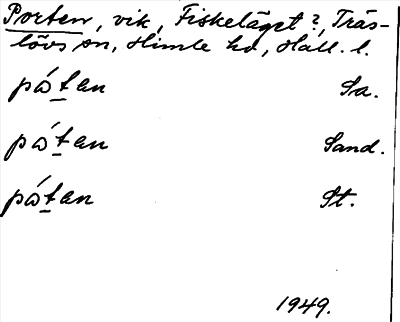 Porten, vik, Fiskeläget?, Träs-
lövs sn, Himle hd, Hall. l.
pǻtan Sa.
pǻtan Sand.
pǻtan St.
1949.